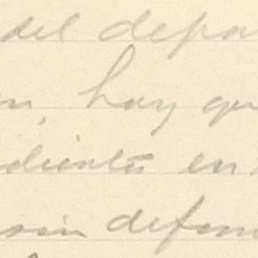 del depa
n, hay qu
diente en
sin defen